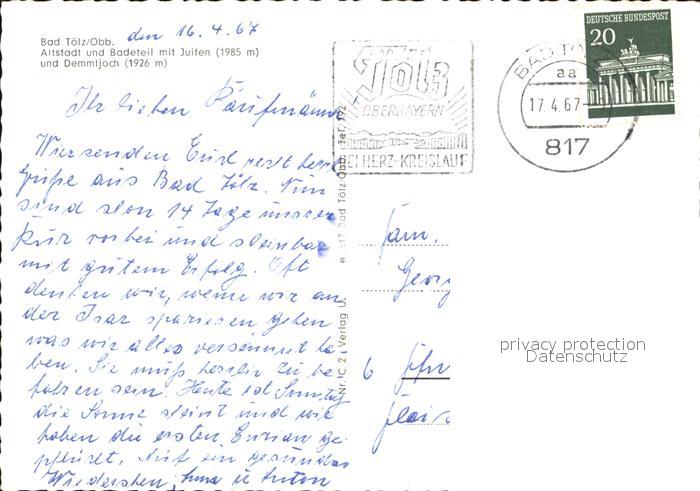 Bad Tölz/Obb. den 16.4.67
Altstadt und Badeteil mit Juifen (1985 m)
und Demmljoch (1926 m)
Ihr lieben
Wir senden Euch recht
Grüße aus Bad Tölz. Nun
sind schon 14 Tage unserer
Kur vorbei und scheinbar
mit gutem Erfolg. Oft
denken wir, wenn wir an
der Isar spazieren gehen
was wir alles versäumt ha
ben. Sie muß herrlich zu be
fahren sein. Heute ist Sonntag
die Sonne scheint und wir
haben die ersten Enzian ge-
pflückt. Auf ein gesundes
Wiedersehen, u Anton
Nr. C 2 Verlag
617 Bad Tölz/Obb.
TÖLZ
OBERBAYERN
BEI HERZ-KREISLAUF
BAD TÖ
aa
17.4.67
817
DEUTSCHE BUNDESPOST
20
Fam.
Georg
6
privacy protection
Datenschutz